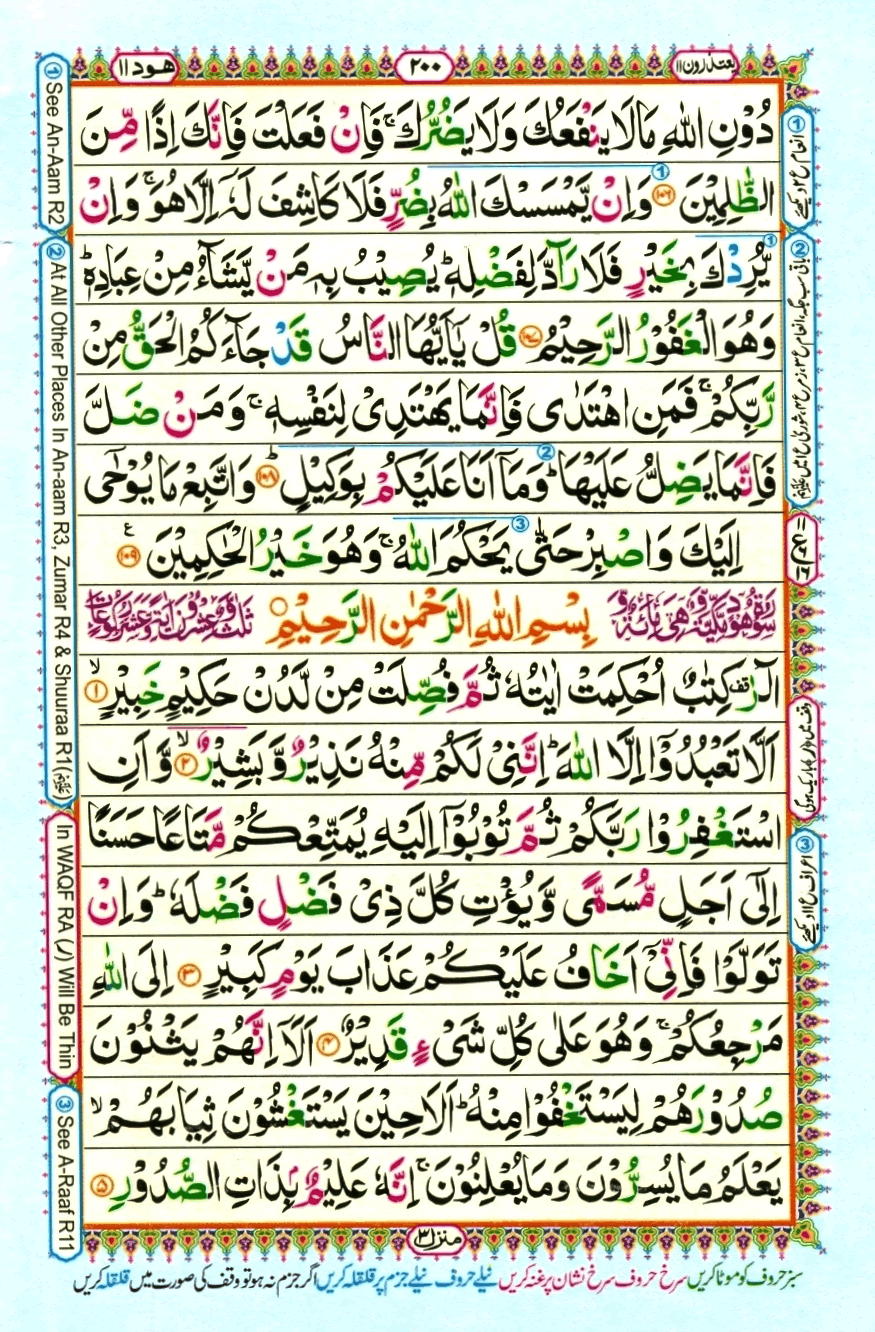 يعتذرون ١١
٢٠٠
هود ١١
دُوْنِ اللّٰهِ مَا لَا يَنْفَعُكَ وَلَا يَضُرُّكَ ۚ فَاِنْ فَعَلْتَ فَاِنَّكَ اِذًا مِّنَ
الظّٰلِمِيْنَ ﴿١٠٦﴾ وَاِنْ يَّمْسَسْكَ اللّٰهُ بِضُرٍّ فَلَا كَاشِفَ لَهٗٓ اِلَّا هُوَ ۚ وَاِنْ
يُّرِدْكَ بِخَيْرٍ فَلَا رَآدَّ لِفَضْلِهٖ ؕ يُصِيْبُ بِهٖ مَنْ يَّشَآءُ مِنْ عِبَادِهٖ ؕ
وَهُوَ الْغَفُوْرُ الرَّحِيْمُ ﴿١٠٧﴾ قُلْ يٰٓاَيُّهَا النَّاسُ قَدْ جَآءَكُمُ الْحَقُّ مِنْ
رَّبِّكُمْ ۚ فَمَنِ اهْتَدٰى فَاِنَّمَا يَهْتَدِيْ لِنَفْسِهٖ ۚ وَمَنْ ضَلَّ
فَاِنَّمَا يَضِلُّ عَلَيْهَا ؕ وَمَآ اَنَا عَلَيْكُمْ بِوَكِيْلٍ ﴿١٠٨﴾ وَاتَّبِعْ مَا يُوْحٰٓى
اِلَيْكَ وَاصْبِرْ حَتّٰى يَحْكُمَ اللّٰهُ ۚ وَهُوَ خَيْرُ الْحٰكِمِيْنَ ﴿١٠٩﴾ ع
بِسْمِ اللّٰهِ الرَّحْمٰنِ الرَّحِيْمِ
الٓرٰ قف كِتٰبٌ اُحْكِمَتْ اٰيٰتُهٗ ثُمَّ فُصِّلَتْ مِنْ لَّدُنْ حَكِيْمٍ خَبِيْرٍ ﴿١﴾
اَلَّا تَعْبُدُوْٓا اِلَّا اللّٰهَ ؕ اِنَّنِيْ لَكُمْ مِّنْهُ نَذِيْرٌ وَّبَشِيْرٌ ﴿٢﴾ وَّاَنِ
اسْتَغْفِرُوْا رَبَّكُمْ ثُمَّ تُوْبُوْٓا اِلَيْهِ يُمَتِّعْكُمْ مَّتَاعًا حَسَنًا
اِلٰٓى اَجَلٍ مُّسَمًّى وَّيُؤْتِ كُلَّ ذِيْ فَضْلٍ فَضْلَهٗ ؕ وَاِنْ
تَوَلَّوْا فَاِنِّيْٓ اَخَافُ عَلَيْكُمْ عَذَابَ يَوْمٍ كَبِيْرٍ ﴿٣﴾ اِلَى اللّٰهِ
مَرْجِعُكُمْ ۚ وَهُوَ عَلٰى كُلِّ شَيْءٍ قَدِيْرٌ ﴿٤﴾ اَلَآ اِنَّهُمْ يَثْنُوْنَ
صُدُوْرَهُمْ لِيَسْتَخْفُوْا مِنْهُ ؕ اَلَا حِيْنَ يَسْتَغْشُوْنَ ثِيَابَهُمْ ۙ
يَعْلَمُ مَا يُسِرُّوْنَ وَمَا يُعْلِنُوْنَ ۚ اِنَّهٗ عَلِيْمٌۢ بِذَاتِ الصُّدُوْرِ ﴿٥﴾
منزل ٣
سبز حروف کو موٹا کریں سرخ حروف سرخ نشان پر غنہ کریں نیلے حروف نیلے جزم پر قلقلہ کریں اگر جزم نہ ہو تو وقف کی صورت میں قلقلہ کریں
① See An-Aam R2
② At All Other Places In An-aam R3, Zumar R4 & Shuuraa R1
In WAQF RA (ر) Will Be Thin
③ See A-Raaf R11